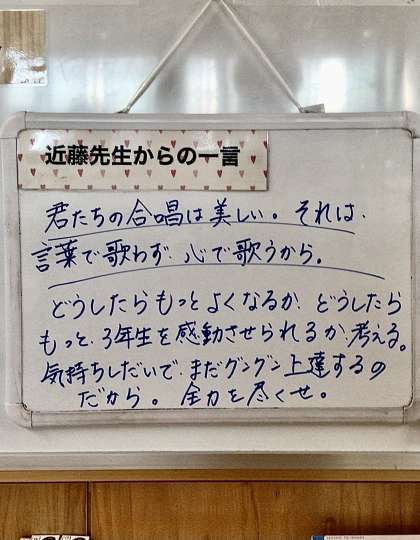 近藤先生からの一言
君たちの合唱は美しい。それは、
言葉で歌わず、心で歌うから。
どうしたらもっとよくなるか、どうしたら
もっと、3年生を感動させられるか、考える。
気持ちしだいで、まだグングン上達するの
だから。 全力を尽くせ。